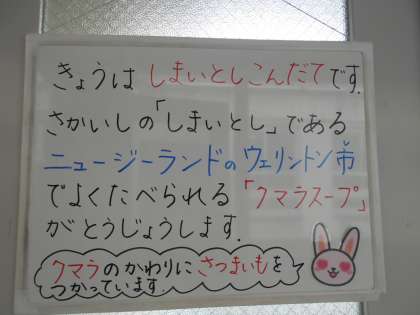 きょうは しまいとしこんだてです.
さかいしの「しまいとし」である
ニュージーランドのウェリントン市
でよくたべられる「クマラスープ」
がとうじょうします.
クマラのかわりにさつまいもを
つかっています.